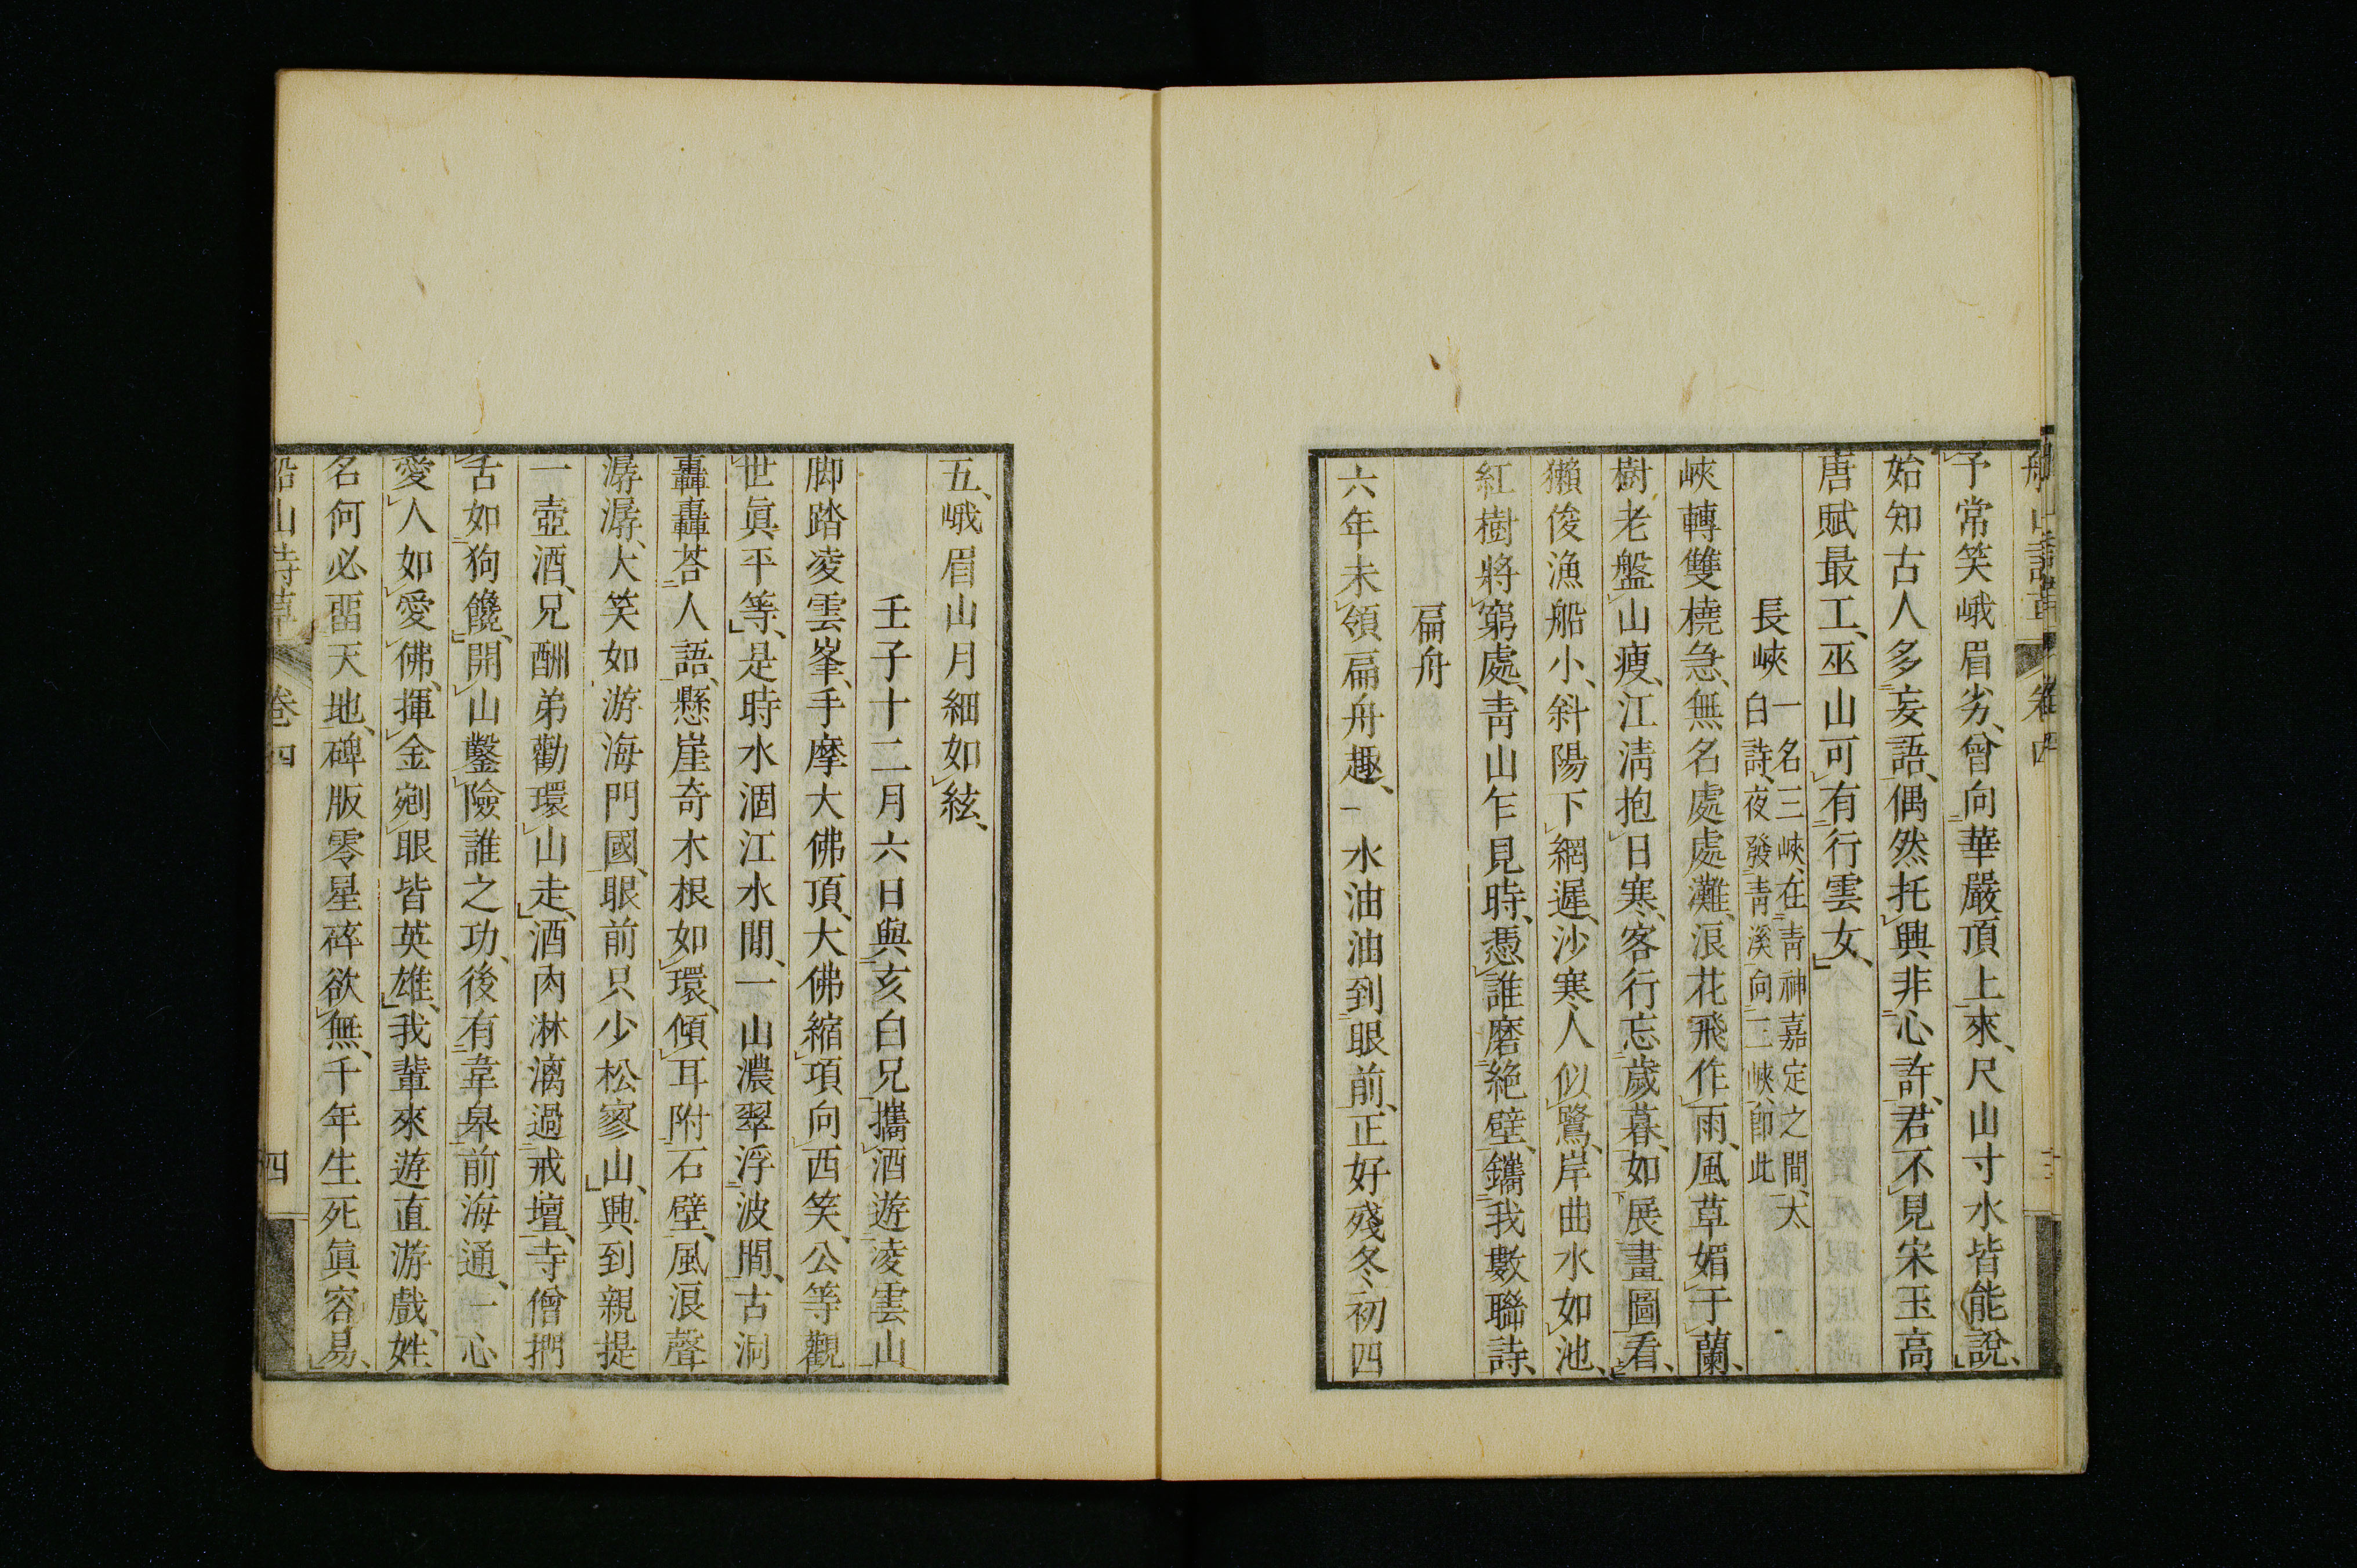 予常笑峨眉劣、曾向華嚴頂上來、尺山寸水皆能說、
始知古人多妄語、偶然托興非心許、君不見宋玉高
唐賦最工、巫山可有行雲女、
長峽 一名三峽、在青神嘉定之間、太
白詩、夜發青溪向三峽、卽此
峽轉雙橈急、無名處處灘、浪花飛作雨、風草媚于蘭、
樹老盤山瘦、江淸抱日寒、客行忘歲暮、如展畫圖看、
獺俊漁船小、斜陽下網遲、沙寒人似鷺、岸曲水如池、
紅樹將窮處、靑山乍見時、憑誰磨絕壁、鐫我數聯詩、
扁舟
六年未領扁舟趣、一水油油到眼前、正好殘冬初四
五、峨眉山月細如絃、
壬子十二月六日與亥白兄攜酒遊凌雲山
脚踏凌雲峯、手摩大佛頂、大佛縮項向西笑、公等觀
世眞平等、是時水涸江水間、一山濃翠浮波間、古洞
轟轟荅人語、懸崖奇木根如環、傾耳附石壁、風浪聲
潺潺、大笑如游海門國、眼前只少松寥山、興到親提
一壺酒、兄酬弟勸環山走、酒肉淋漓過戒壇、寺僧捫
舌如狗饞、開山鑿險誰之功、後有韋皋前海通、一心
愛人如愛佛、揮金剜眼皆英雄、我輩來遊直游戲、姓
名何必畱天地、碑版零星碎欲無、千年生死眞容易、
船山詩草 卷四 四